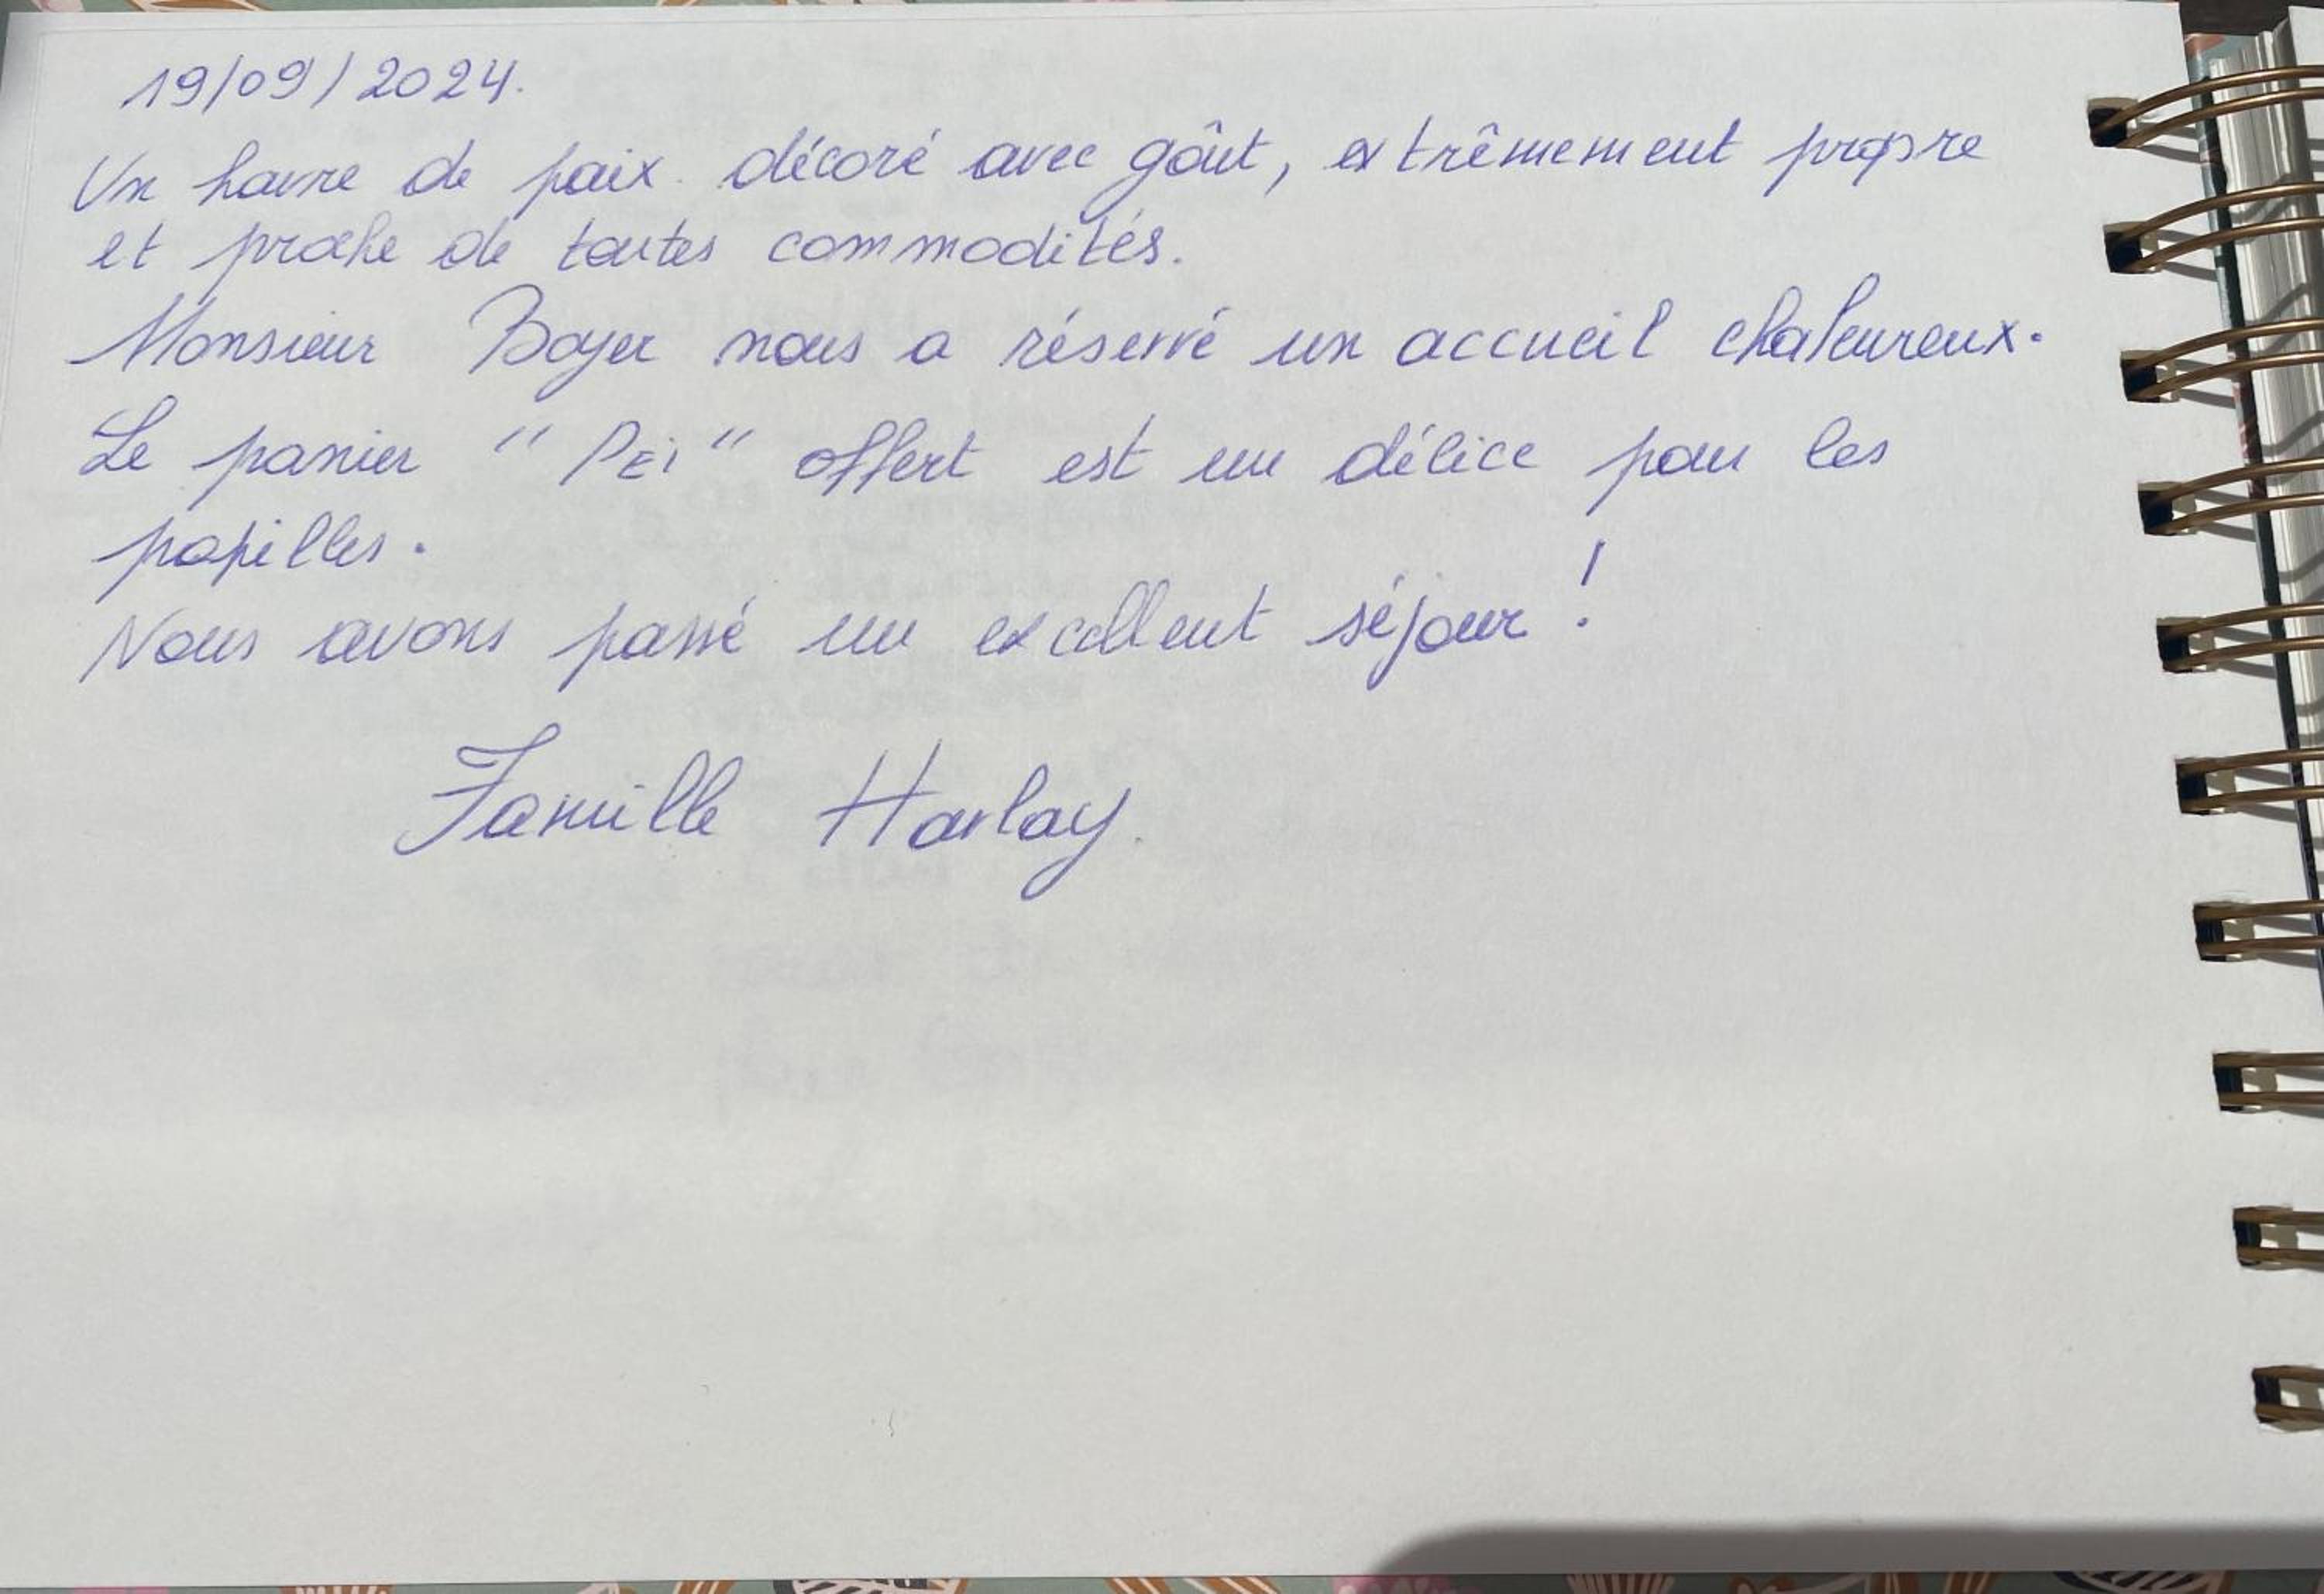 19/09/2024.
Un havre de paix décoré avec goût, extrêmement propre
et proche de toutes commodités.
Monsieur Boyer nous a réservé un accueil chaleureux.
Le panier "Péi" offert est un délice pour les
papilles.
Nous avons passé un excellent séjour !
Famille Harlay.